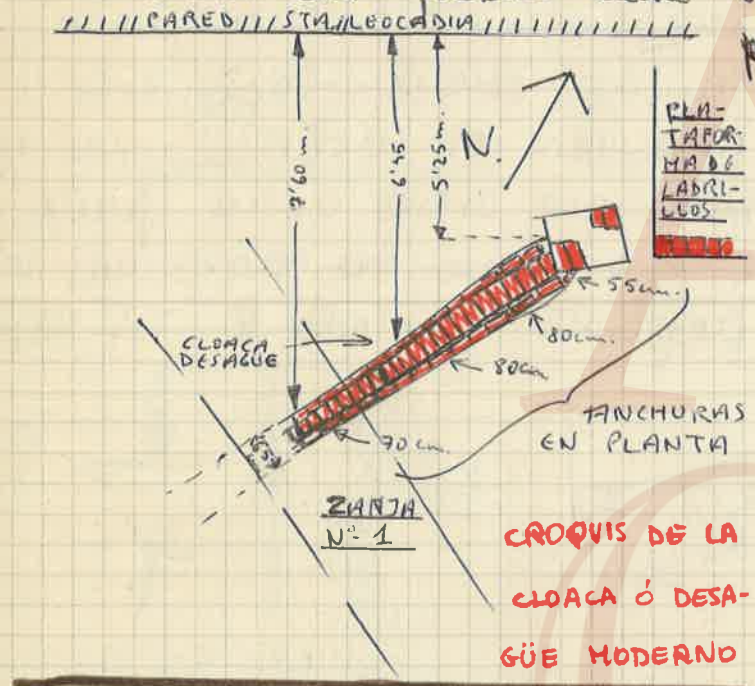 PARED STA. LEOCADIA
7'60 m.
6'45
5'25 m.
N.
PLA-
TAFOR-
MA DE
LADRI-
LLOS
55 cm.
80 cm.
80 cm.
70 cm.
CLOACA
DESAGÜE
ANCHURAS
EN PLANTA
ZANJA
Nº- 1
CROQUIS DE LA
CLOACA Ó DESA-
GÜE MODERNO